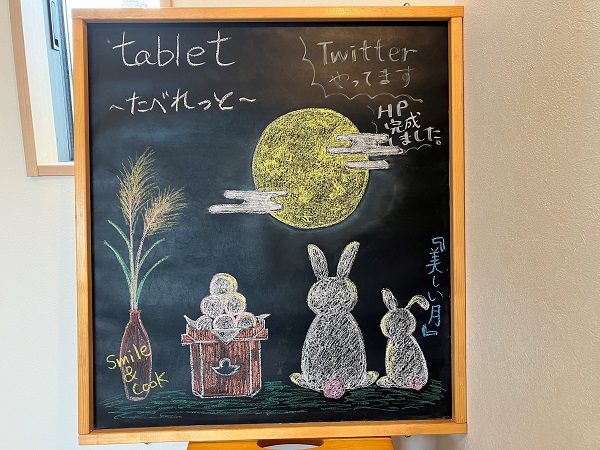 tablet
~たべれっと~
Twitter
やってます
HP
完成
しました。
『美しい月』
Smile
&
Cook